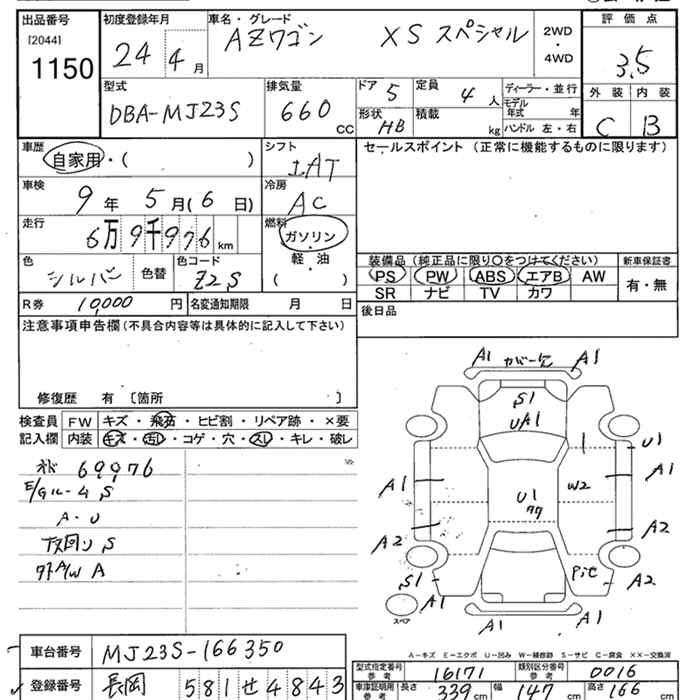 出品番号 初度登録年月 車名・グレード 評価点
[2044] 1150 24年4月 AZワゴン XSスペシャル 2WD・4WD 3.5
型式 排気量 ドア 5 定員 4人 ディーラー・並行 外装 内装
DBA-MJ23S 660cc 形状 HB 積載 kg モデル年式 年 C B
ハンドル 左・右
車歴 シフト セールスポイント (正常に機能するものに限ります)
自家用・( ) IAT
車検 冷房
9年5月(6日) AC
走行 燃料
6万9千976km ガソリン
軽・油
( )
色 色替 色コード 装備品 (純正品に限り○をつけてください) 新車保証書
シルバー Z2S PS PW ABS エアB AW 有・無
SR ナビ TV カワ
R券 10,000円 名変通知期限 月 日 後日品
注意事項申告欄(不具合内容等は具体的に記入して下さい)
修復歴 有 〔箇所 〕
検査員記入欄 FW キズ・飛石・ヒビ割・リペア跡・×要
内装 キズ・汚レ・コゲ・穴・スレ・キレ・破レ
69976
E/gルーム S
A・U
下回り S
外A/W A
A1 カバーナシ A1
S1
UA1
U1
A1 A1
W2
U1
A2 A2
S1 Pitt A2
A1 A1 A1
スペア
A-キズ E-エクボ U-凹み W-補修跡 S-サビ C-腐食 XX-交換済
車台番号 MJ23S-166350
登録番号 長岡 581 せ 4843
型式指定番号 参考 16171 類別区分番号 参考 0016
車庫証明用 参考 長さ 339cm 幅 147cm 高さ 166cm